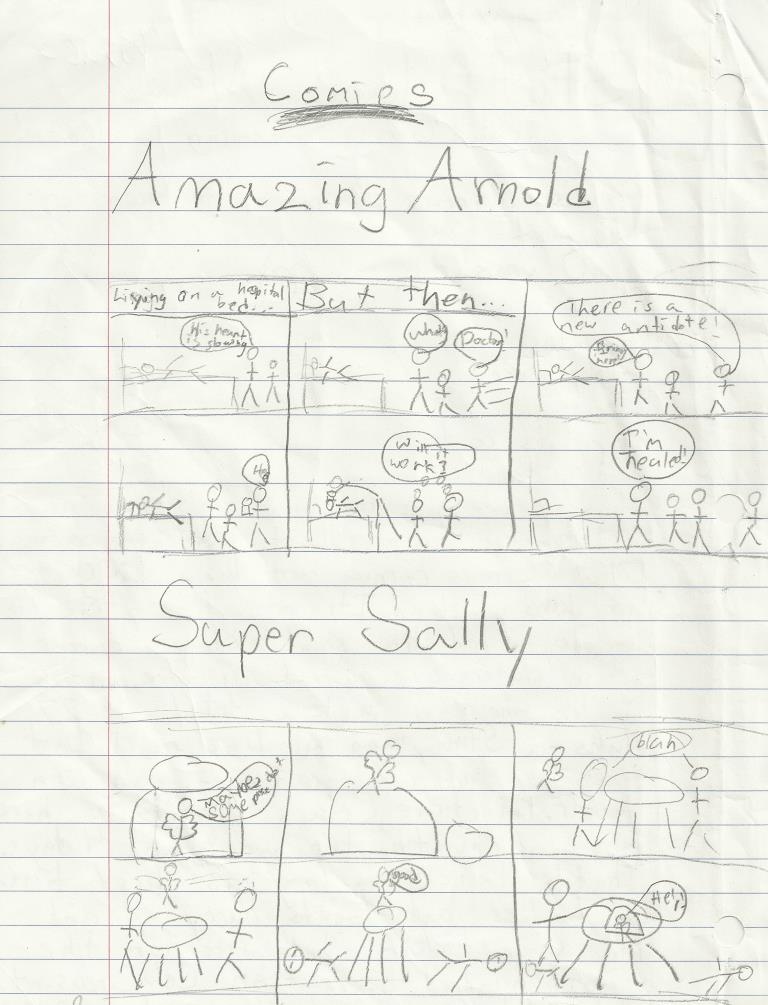 Comics
Amazing Arnold
on a hospital
bed...
His heart
is slowing
But then...
What?
Doctor!
There is a
new antidote!
Bring
here!
Will it
work?
I'm
healed!
Super Sally
some
blah